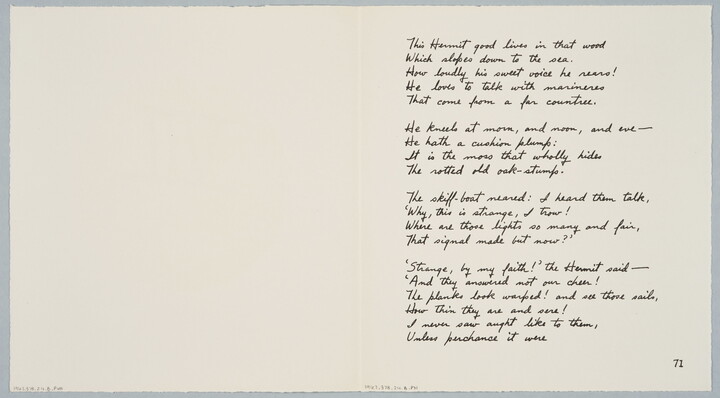 This Hermit good lives in that wood
Which slopes down to the sea.
How loudly his sweet voice he rears!
He loves to talk with marineres
That come from a far countree.
He kneels at morn, and noon, and eve—
He hath a cushion plump:
It is the moss that wholly hides
The rotted old oak-stump.
The skiff-boat neared: I heard them talk,
'Why, this is strange, I trow!
Where are those lights so many and fair,
That signal made but now?'
'Strange, by my faith!' the Hermit said—
'And they answered not our cheer!
The planks look warped! and see those sails,
How thin they are and sere!
I never saw aught like to them,
Unless perchance it were
71